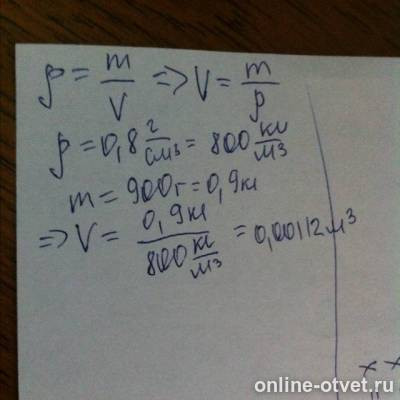 ρ = m/V => V = m/ρ
ρ = 0,8 г/см³ = 800 кг/м³
m = 900г = 0,9кг
=> V = 0,9кг / 800 кг/м³ = 0,00112 м³
x x
online-otvet.ru